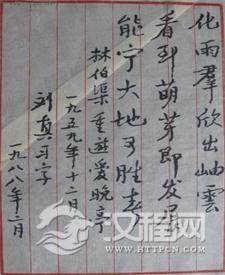 化雨群欣出岫雲
看到萌芽即发生
能宁大地了胜春
林伯渠重遊爱晚亭
一九五九年十二月
刘真习字
一九八八年二月
汉程网
WWW.HTTPCN.COM